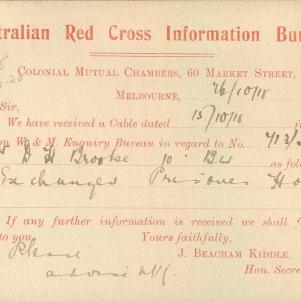 tralian Red Cross Information Bu
COLONIAL MUTUAL CHAMBERS, 60 MARKET STREET,
MELBOURNE, 26/10/18
Sir,
We have received a Cable dated 15/10/18 f
n W & M. Enquiry Bureau in regard to No.
D H Brooke 10 Bn as fol
Exchanged Prisoner Ho
If any further information is received we shall f
to you. Yours faithfully,
Please J. BEACHAM KIDDLE,
advise Hon. Secre